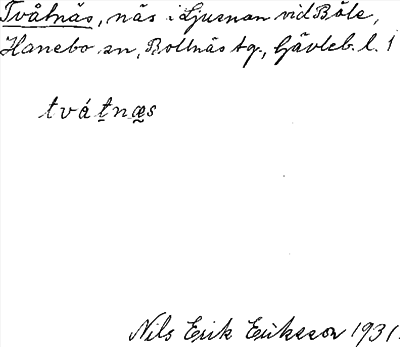 Tvåtnäs, näs i Ljusnan vid Böle,
Hanebo sn, Bollnäs tg., Gävleb. l. 1
tvátnæs
Nils Erik Eriksson 1931.